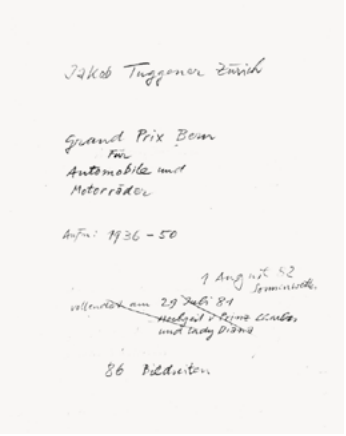 Jakob Tuggener Zürich
Grand Prix Bern
Für
Automobile und
Motorräder
Aufn: 1936-50
1 August 82
vollendet am 29 Juli 81
Hochzeit v Prinz Charles
und Lady Diana
86 Bildseiten